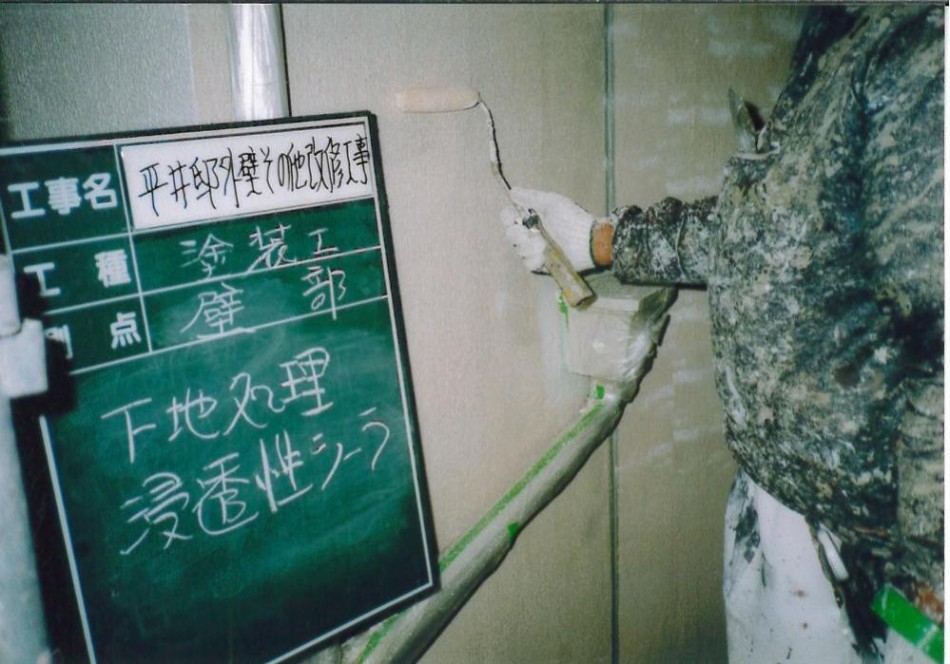 工事名 平井邸外壁その他改修工事
工種 塗装工
測点 壁部
下地処理
浸透性シーラ